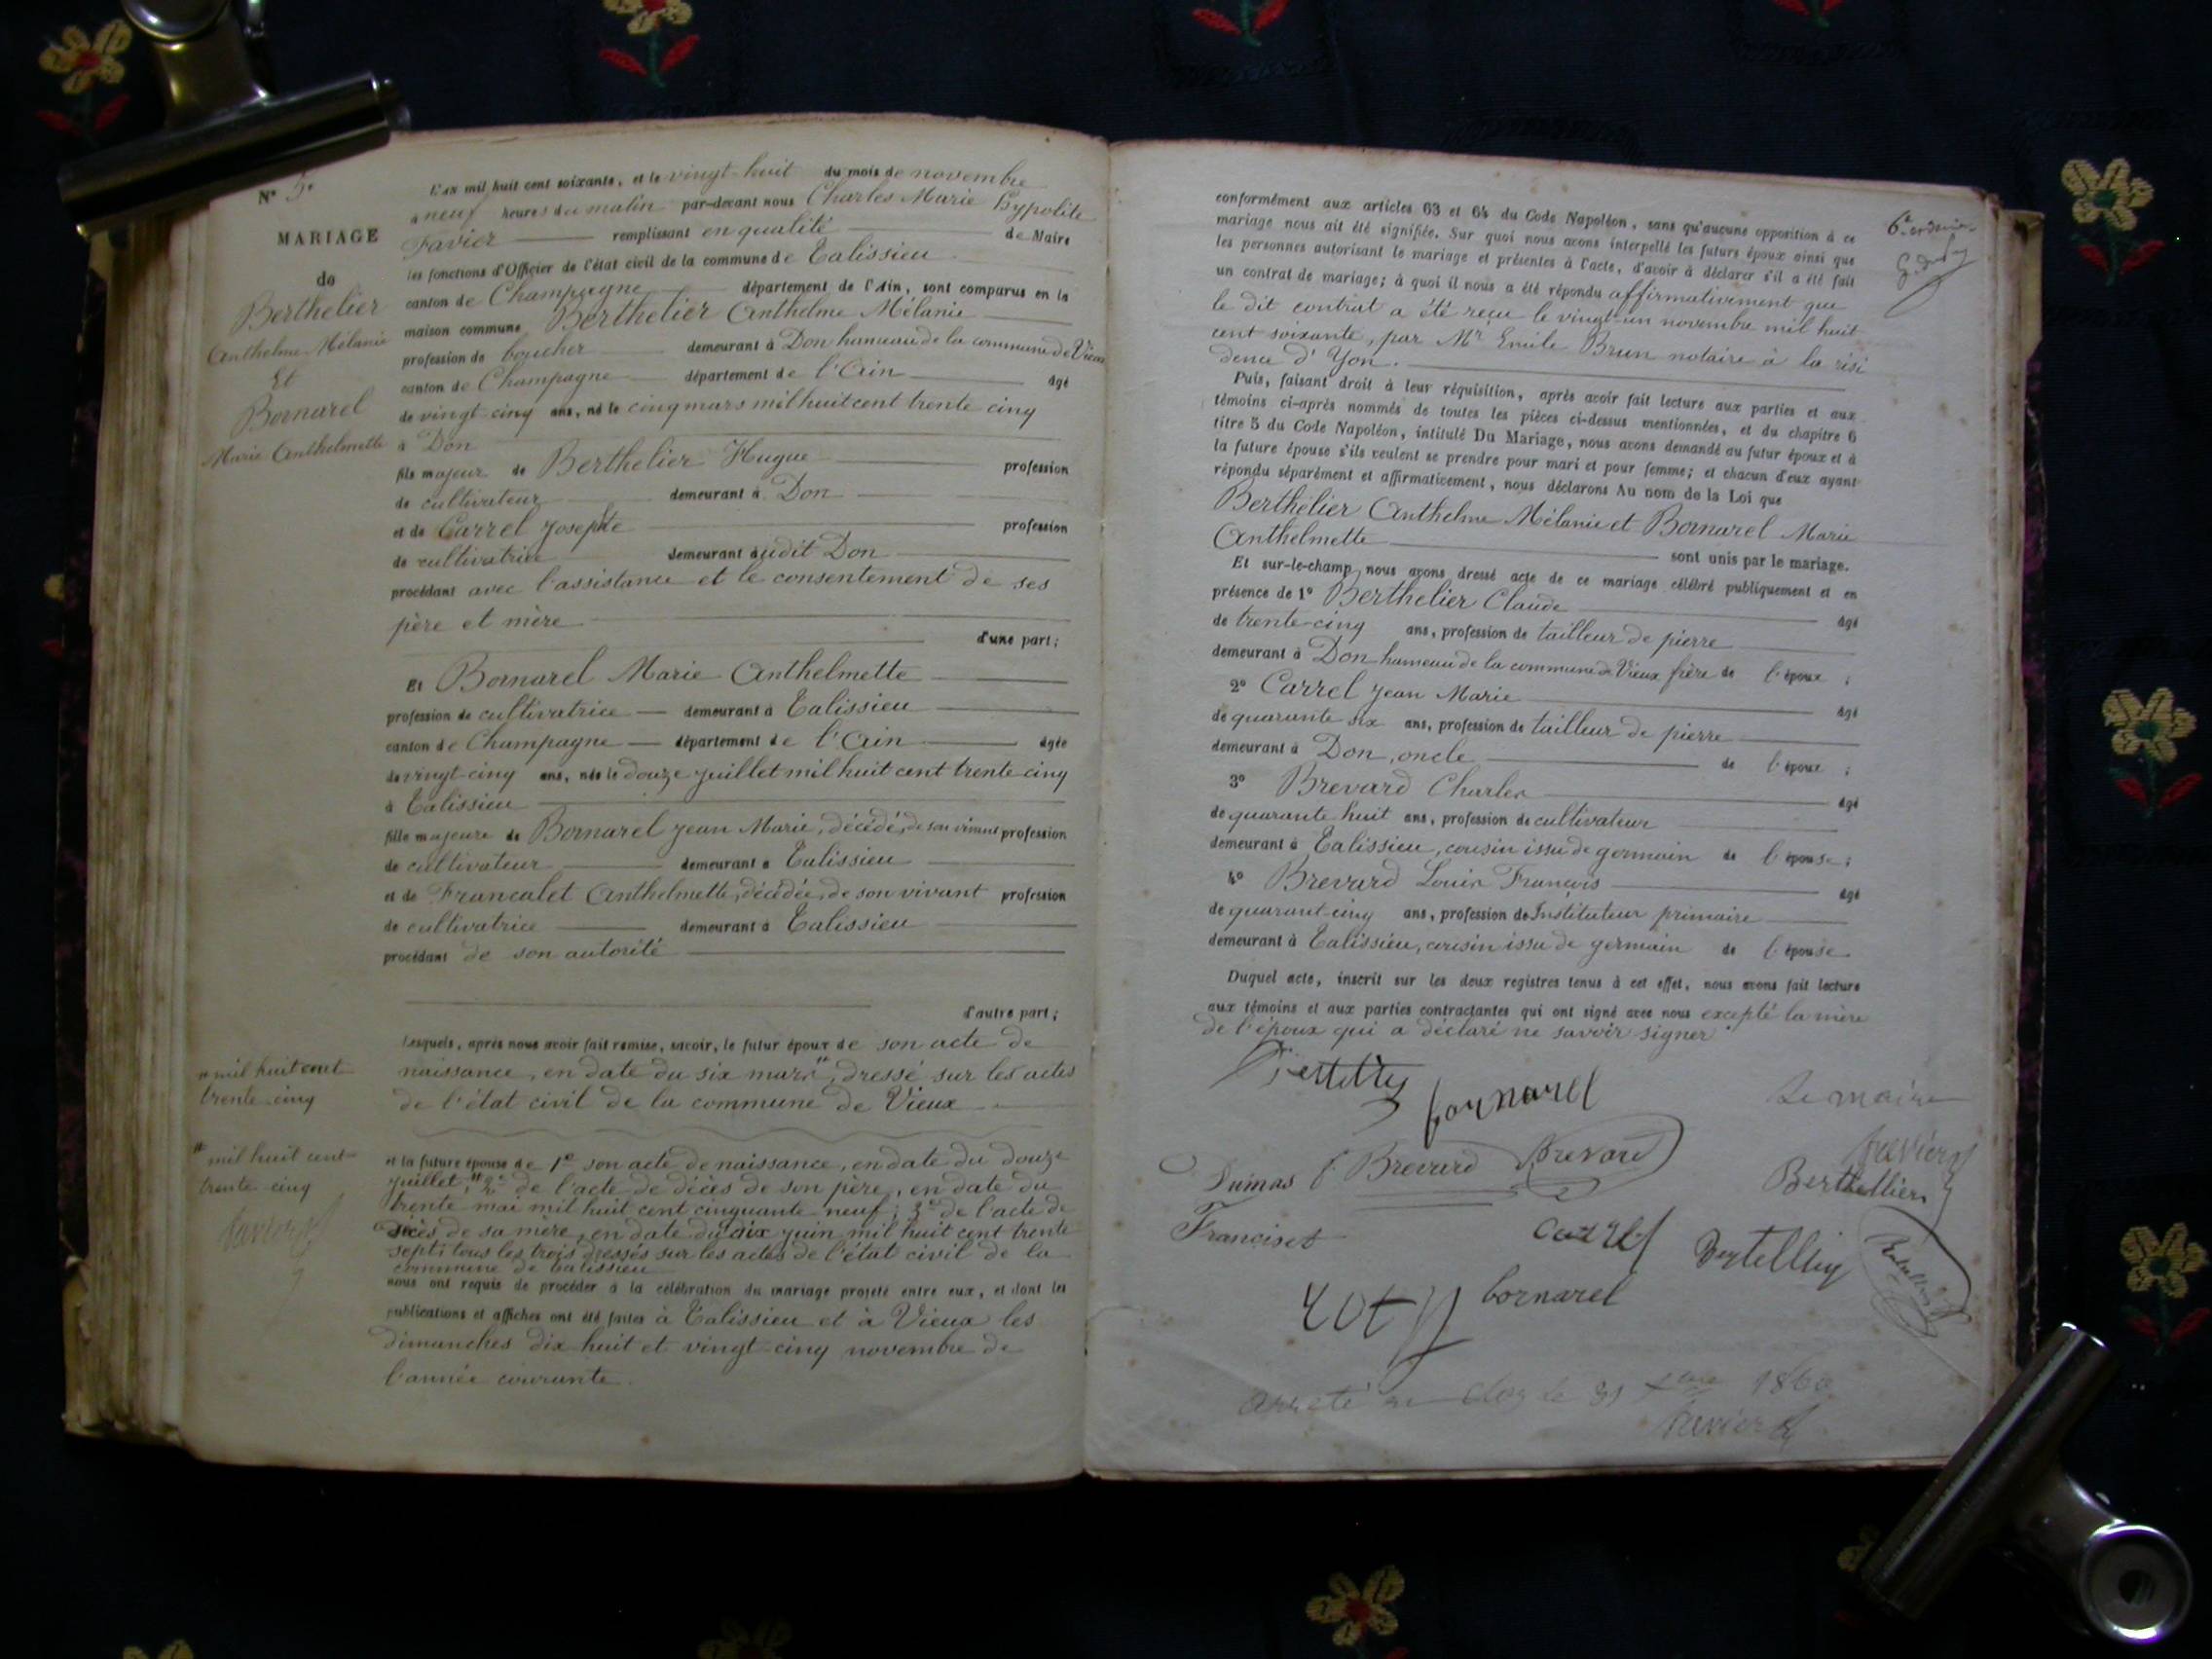 N° 5.
MARIAGE
de
Berthelier
Anthelme Mélanie
Et
Bornarel
Marie Anthelmette
L'AN mil huit cent soixante, et le vingt-huit du mois de novembre
à neuf heures du matin par-devant nous Charles Marie Hypolite
Favier remplissant en qualité de Maire
les fonctions d'Officier de l'état civil de la commune de Talissieu
canton de Champagne département de l'Ain, sont comparus en la
maison commune Berthelier Anthelme Mélanie
profession de boucher demeurant à Don hameau de la commune de Vieux
canton de Champagne département de l'Ain âgé
de vingt-cinq ans, né le cinq mars mil huit cent trente cinq
à Don
fils majeur de Berthelier Hugue profession
de cultivateur demeurant à Don
et de Carrel Josephte profession
de cultivatrice demeurant audit Don
procédant avec l'assistance et le consentement de ses
père et mère
d'une part;
Et Bornarel Marie Anthelmette
profession de cultivatrice demeurant à Talissieu
canton de Champagne département de l'Ain âgée
de vingt-cinq ans, née le douze juillet mil huit cent trente-cinq
à Talissieu
fille majeure de Bornarel Jean Marie, décédé, de son vivant profession
de cultivateur demeurant à Talissieu
et de Francalet Anthelmette, décédée, de son vivant profession
de cultivatrice demeurant à Talissieu
procédant de son autorité
d'autre part;
Lesquels, après nous avoir fait remise, savoir, le futur époux de son acte de
naissance, en date du six mars ", dressé sur les actes
de l'état civil de la commune de Vieux
" mil huit cent
trente-cinq
et la future épouse de 1° son acte de naissance, en date du douze
juillet, " 2° de l'acte de décès de son père, en date du
trente mai mil huit cent cinquante neuf; 3° de l'acte de
décès de sa mère, en date du dix juin mil huit cent trente
sept; tous les trois dressés sur les actes de l'état civil de la
commune de Talissieu
" mil huit cent
trente cinq
Favier
nous ont requis de procéder à la célébration du mariage projeté entre eux, et dont les
publications et affiches ont été faites à Talissieu et à Vieux les
dimanches dix huit et vingt-cinq novembre de
l'année courante.
conformément aux articles 63 et 64 du Code Napoléon, sans qu'aucune opposition à ce
mariage nous ait été signifiée. Sur quoi nous avons interpellé les futurs époux ainsi que
les personnes autorisant le mariage et présentes à l'acte, d'avoir à déclarer s'il a été fait
un contrat de mariage; à quoi il nous a été répondu affirmativement que
le dit contrat a été reçu le vingt-un novembre mil huit
cent soixante, par Mr Emile Brun notaire à la rési
dence d'Yon.
Puis, faisant droit à leur réquisition, après avoir fait lecture aux parties et aux
témoins ci-après nommés de toutes les pièces ci-dessus mentionnées, et du chapitre 6
titre 5 du Code Napoléon, intitulé Du Mariage, nous avons demandé au futur époux et à
la future épouse s'ils veulent se prendre pour mari et pour femme; et chacun d'eux ayant
répondu séparément et affirmativement, nous déclarons Au nom de la Loi que
Berthelier Anthelme Mélanie et Bornarel Marie
Anthelmette sont unis par le mariage.
Et sur-le-champ nous avons dressé acte de ce mariage célébré publiquement et en
présence de 1° Berthelier Claude âgé
de trente-cinq ans, profession de tailleur de pierre
demeurant à Don hameau de la commune de Vieux frère de l'époux;
2° Carrel Jean Marie âgé
de quarante six ans, profession de tailleur de pierre
demeurant à Don, oncle de l'époux;
3° Brevard Charles âgé
de quarante huit ans, profession de cultivateur
demeurant à Talissieu, cousin issu de germain de l'épouse;
4° Brevard Louis François âgé
de quarant-cinq ans, profession de Instituteur primaire
demeurant à Talissieu, cousin issu de germain de l'épouse
Duquel acte, inscrit sur les deux registres tenus à cet effet, nous avons fait lecture
aux témoins et aux parties contractantes qui ont signé avec nous excepté la mère
de l'époux qui a déclaré ne savoir signer
bornarel
Le maire
Favier
Dumas Brevard Brevard
Berthellier
Franciset
bornarel
arrêté et clos le 31 1860
Favier